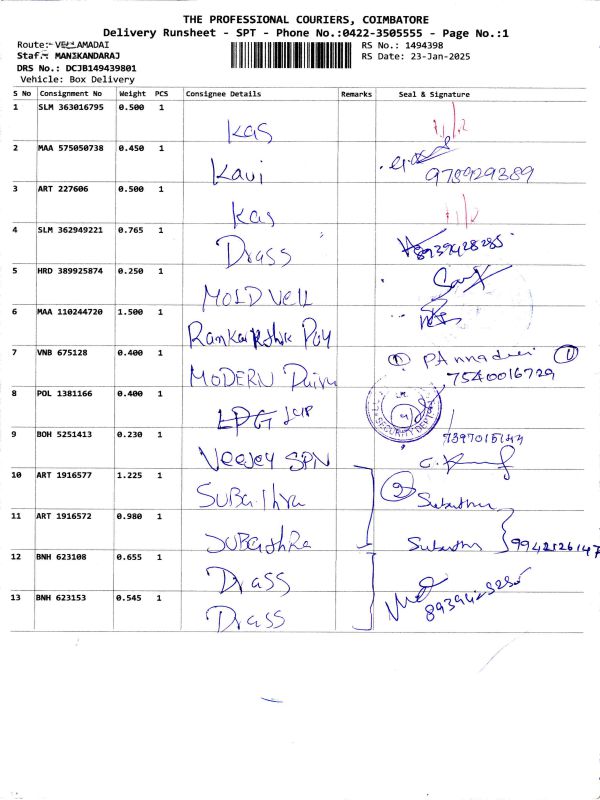 THE PROFESSIONAL COURIERS, COIMBATORE
Delivery Runsheet - SPT - Phone No.:0422-3505555 - Page No.:1
Route: VELLAMADAI RS No.: 1494398
Staf.: MANIKANDARAJ RS Date: 23-Jan-2025
DRS No.: DCJB149439801
Vehicle: Box Delivery
S No Consignment No Weight PCS Consignee Details Remarks Seal & Signature
1 SLM 363016795 0.500 1 Kas
2 MAA 575050738 0.450 1 Kavi 978929389
3 ART 227606 0.500 1 Kas
4 SLM 362949221 0.765 1 Drass 8939428285
5 HRD 389925874 0.250 1 MOLD VELL
6 MAA 110244720 1.500 1
7 VNB 675128 0.400 1 MODERN 7540016729
8 POL 1381166 0.400 1 LPG SECURITY DEPT
9 BOH 5251413 0.230 1 VEEJEY SPN
10 ART 1916577 1.225 1 SUBathra 2
11 ART 1916572 0.980 1 SUBathRa 9942126147
12 BNH 623108 0.655 1 Drass
13 BNH 623153 0.545 1 Drass